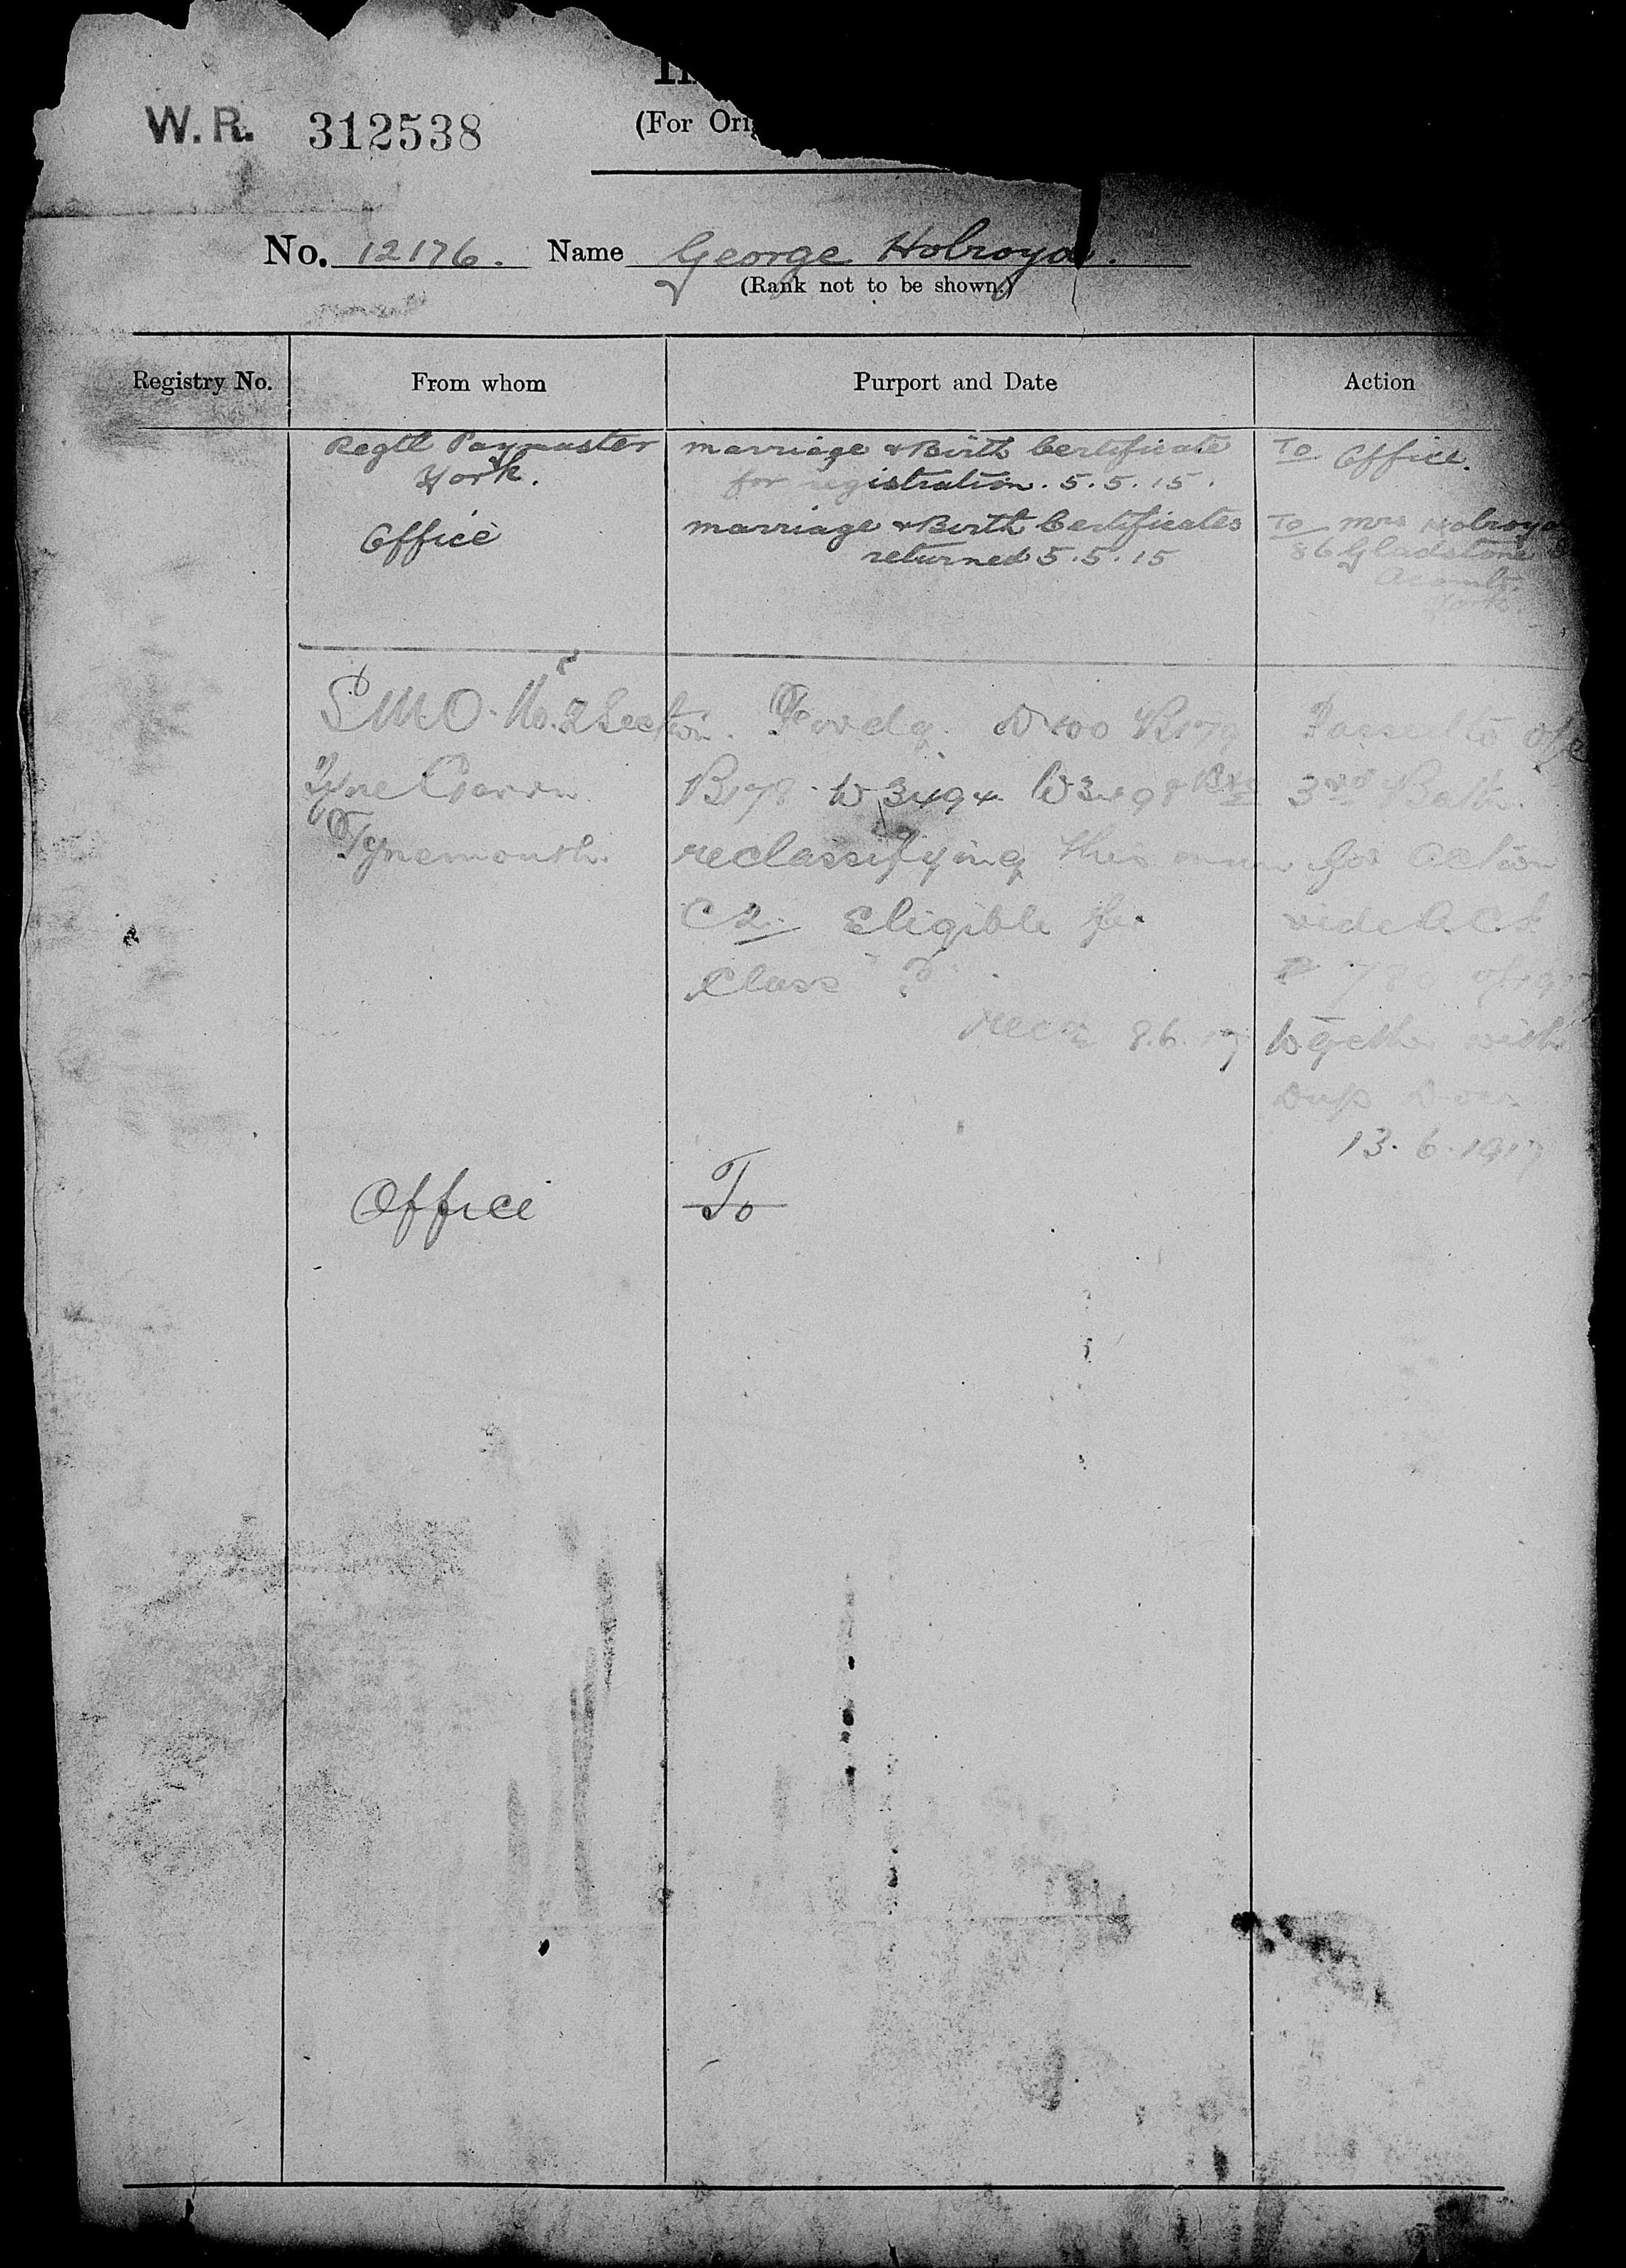 W.R. 312538
(For Orig
No. 12176. Name George Holroyd.
(Rank not to be shown.)
Registry No. From whom Purport and Date Action
Regtl Paymaster
York.
marriage & Birth Certificate
for registration. 5.5.15.
To Office.
Office
marriage & Birth Certificates
returned 5.5.15
To Mrs Holroyd
86 Gladstone
Acomb.
York.
S.M.O. No. 2 Section.
Tyne Garrn.
Tynemouth.
Fwdg. D400 B179
B178 W3494 W3498
reclassifying this man
C2. Eligible for
Class
Recd 8.6.17
Passed to O/c
3rd Battn.
for action
vide A.C.I.
780 of 1917
together with
Dup
13.6.1917
Office To